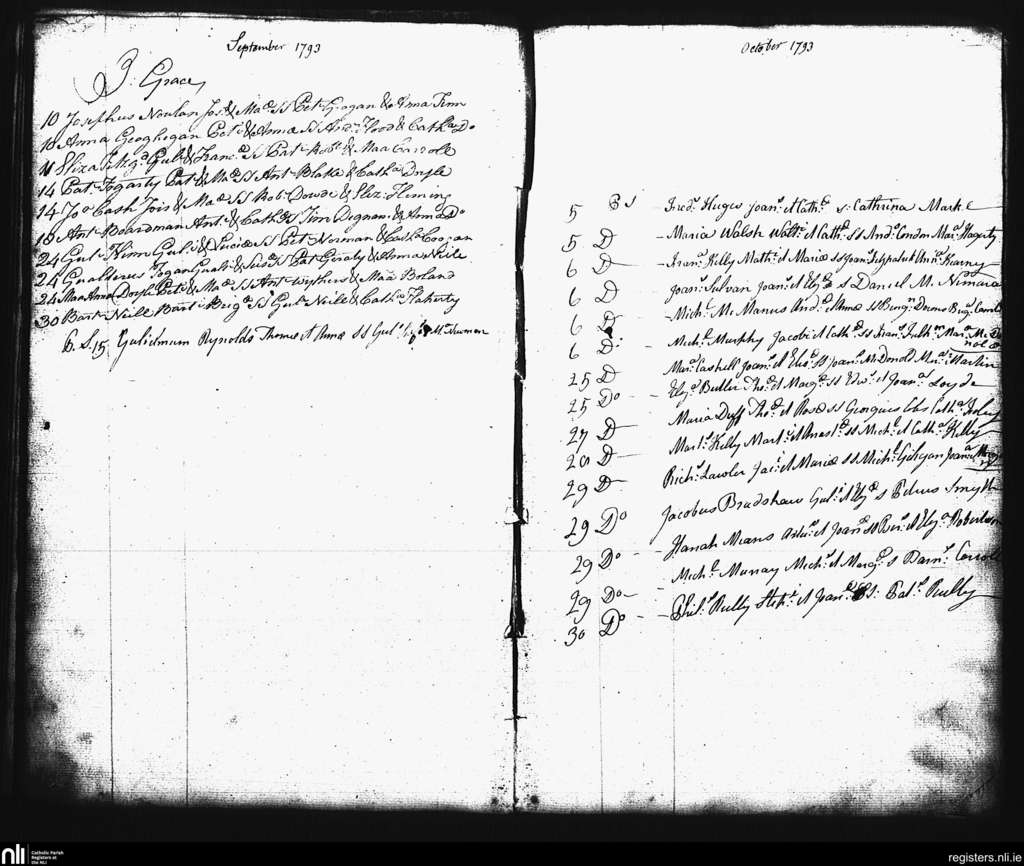 September 1793
J: Grace
10 Josephus Nowlan Jos: & Mae SS Pet Grogan & Anna Finn
10 Anna Geoghegan Pet: & Annæ SS And: Flood & Cath: Do
11 Eliza Fitzgd Gul: & Franc: SS Pat: Robt & Maa Carroll
14 Pat Fogarty Pat & Mae SS Ant Blake & Cath: Doyle
14 Jos Cash Jois & Mae SS Rob: Dowde & Eliz Fleming
18 Ant Boardman Ant: & Cath: SS Tim Dignan & Anna Do
24 Gul Finn Gul: & Luciæ SS Pet Norman & Cath Coogan
24 Gualterus Fogan Gualt: & Sus: SS Pat Geraty & Anna
24 Maa Anna Doyle Pet: & Mae SS Ant Wythers & Maa Boland
30 Bart Neill Bart: & Brig: SS Gul Neill & Cath: Flaherty
B. S, 15, Gulielmum Reynolds Thomæ et Annæ SS Gul: McNamon
October 1793
5 BS – Fred: Huges Joan: et Cath: S: Cathrina Mark
5 D – Maria Walsh Walt: et Cath: SS And: Condon Mar: Hagerty
6 D – Fran: Kelly Math: et Mariæ SS Joan: Ann: Kearny
6 D Joan: Sulvan Joan: et Eliz: S Daniel McNimara
6 D – Mich: McManus And: et Annæ SS Brig:
6 D: – Mich: Murphy Jacobi et Cath: SS Fran: Mar: McDonol
25 D Mar: Cashell Joan: et Eliz: SS Joan: McDonold Mar: Martin
25 Do – Eliz: Butler Tho: et Marg: SS Edw: et Joan: Loyde
27 D Maria Duff Tho: et Rosæ SS Georgius Cath: Foley
28 D Mart: Kelly Mart: et Anast: SS Mich: et Cath: Kelly
29 D – Rich: Lawler Jac: et Mariæ SS Mich: Gilgan Joan:
29 Do – Jacobus Bradshaw Gul: et Eliz: S Petrus Smyth
29 Do – Hanah Means Artu: et Joan: SS Ben: et Eliz: Roberts
29 Do – Mich: Murray Mich: et Marg: S Barn: Carroll
30 Do – Phil: Rielly Steh: et Joan: S: Pat: Rielly
nli
Catholic Parish
Registers at
the NLI
registers.nli.ie